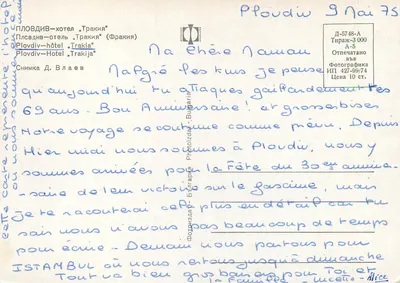 Plovdiv 9 Mai 75
ПЛОВДИВ—хотел „Тракия"
Пловдив—отель „Тракия" (Фракия)
Plovdiv-hôtel „Trakia"
Plovdiv-Hotel „Trakija"
Снимка Д. Влаев
Д-5748-А
Тираж 3 000
А-5
Отпечатано
във
Фотографика
ИП 427-99/74
Цена 10 ст.
Ma Chère Maman
Malgré les kms je pense
qu'aujourd'hui tu attaques gaillardement tes
69 ans. Bon Anniversaire! et grosses bises
Notre voyage se continue comme prévu. Depuis
Hier midi nous sommes à Plovdiv, nous y
sommes arrivés pour la Fête du 30ème anniver-
saire de leur victoire sur le fascisme, mais
je te raconterai cela plus en détail car tu
sais nous n'avons pas beaucoup de temps
pour écrire - Demain nous partons pour
ISTANBUL où nous restons jusqu'à dimanche
Tout va bien gros baisers pour Toi et
la famille - Lucette -
cette carte représente l'hôtel
où nous